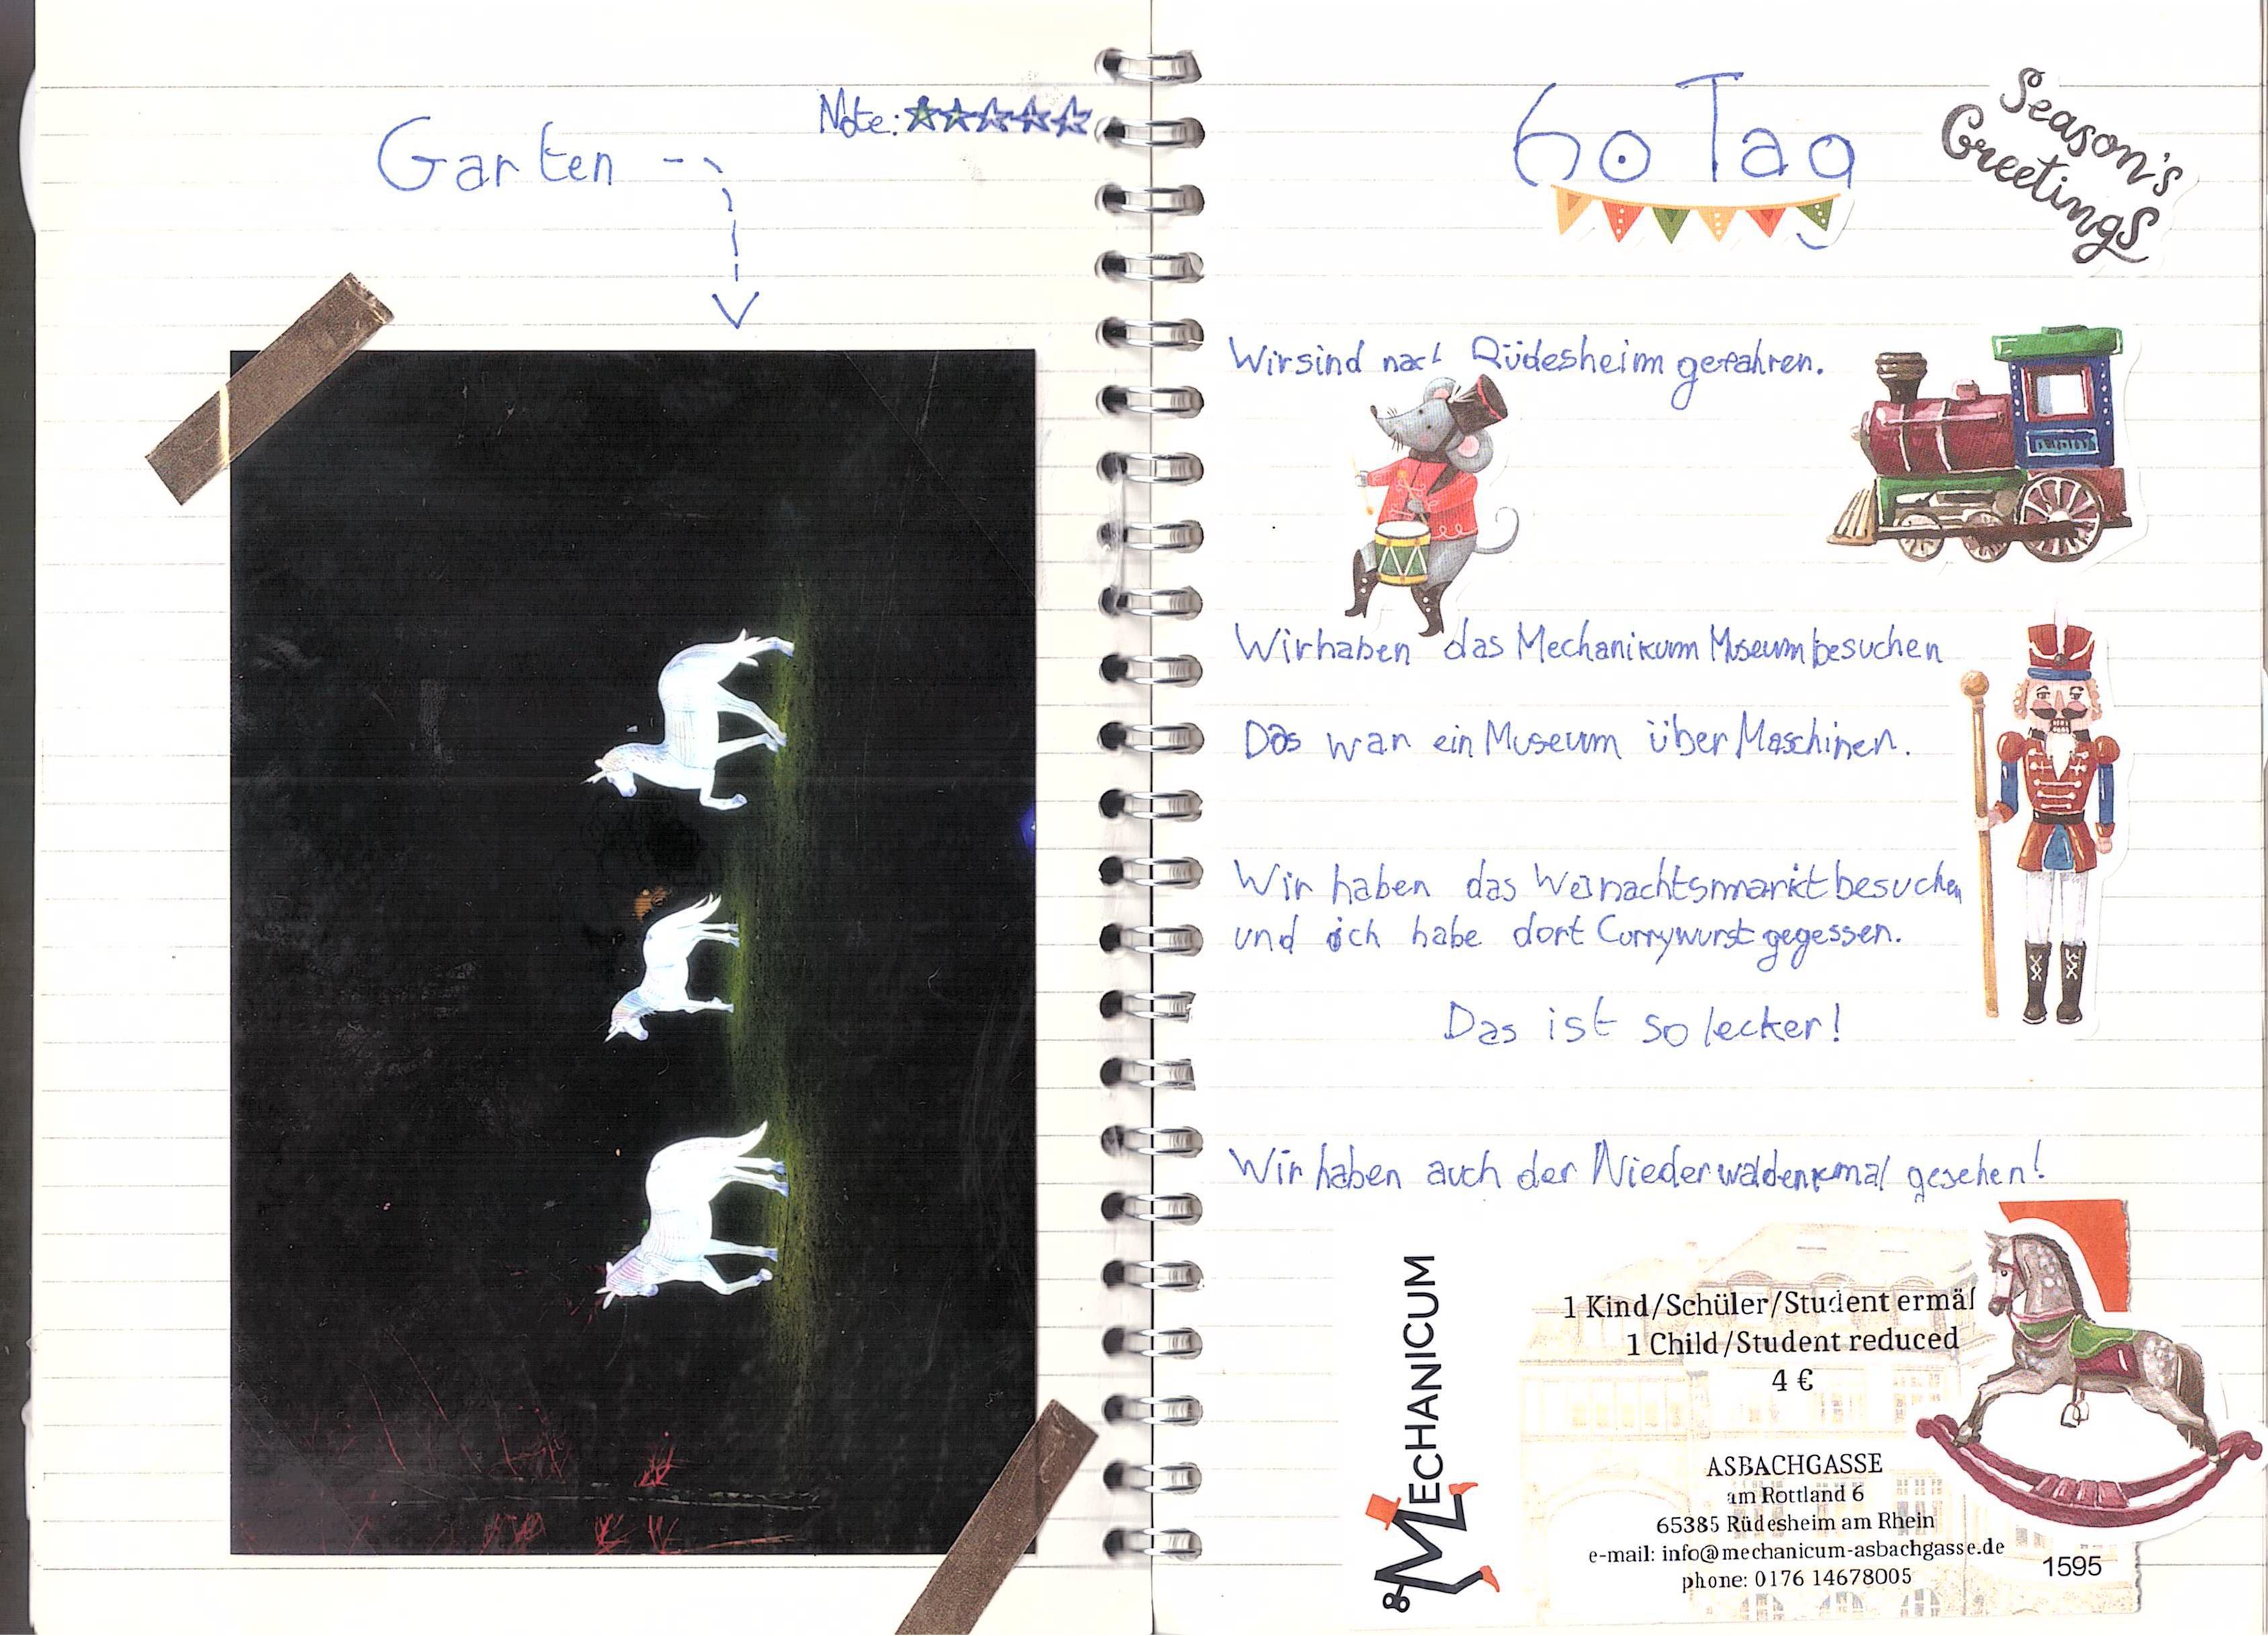 Note:
Garten
60 Tag
Season's
Greetings
Wir sind nach Rüdesheim gefahren.
Wir haben das Mechanikum Museum besuchen
Das war ein Museum über Maschinen.
Wir haben das Weinachtsmarkt besuchen
und ich habe dort Currywurst gegessen.
Das ist so lecker!
Wir haben auch der Niederwaldenkmal gesehen!
MECHANICUM
1 Kind/Schüler/Student ermäß
1 Child/Student reduced
4 €
ASBACHGASSE
am Rottland 6
65385 Rüdesheim am Rhein
e-mail: info@mechanicum-asbachgasse.de
phone: 0176 14678005
1595